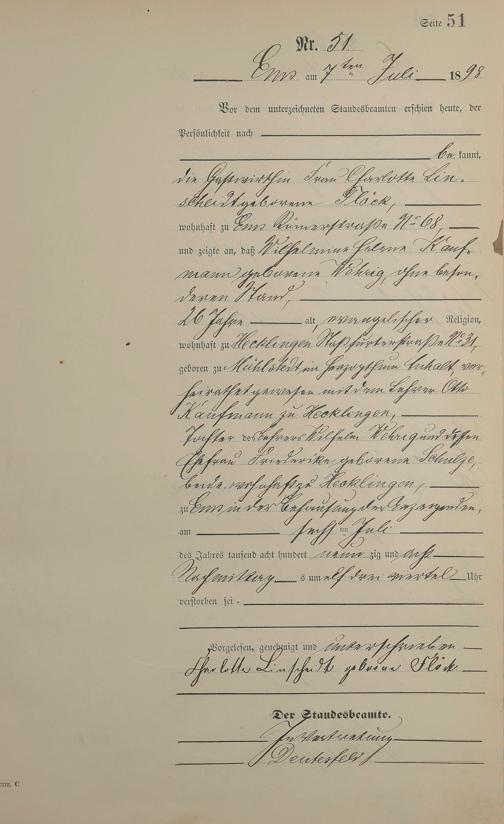 Seite 51
Nr. 51
Ems am 7ten Juli 1898
Vor dem unterzeichneten Standesbeamten erschien heute, der
Persönlichkeit nach
be kannt,
die Gastwirthin Frau Charlotte Lin-
scheidt geborene Flöck,
wohnhaft zu Ems Römerstraße No 68,
und zeigte an, daß Wilhelmine Helene Kauf-
mann geborene Wehrig, ohne beson-
deren Stand,
26 Jahre alt, evangelischer Religion,
wohnhaft zu Hecklingen Staßfurterstraße No 31,
geboren zu Mühlstedt im Herzogthum Anhalt, ver-
heirathet gewesen mit dem Lehrer Otto
Kaufmann zu Hecklingen,
Tochter des Lehrers Wilhelm Wehrig und dessen
Ehefrau Friederike geborene Schulze,
beide wohnhaft zu Hecklingen,
zu Ems in der Behausung der Anzeigenden,
am sechs ten Juli
des Jahres tausend acht hundert neun zig und acht
Nachmittag s um elf drei viertel Uhr
verstorben sei.
Vorgelesen, genehmigt und unterschrieben
Charlotte Linscheidt geborene Flöck
Der Standesbeamte.
In Vertretung